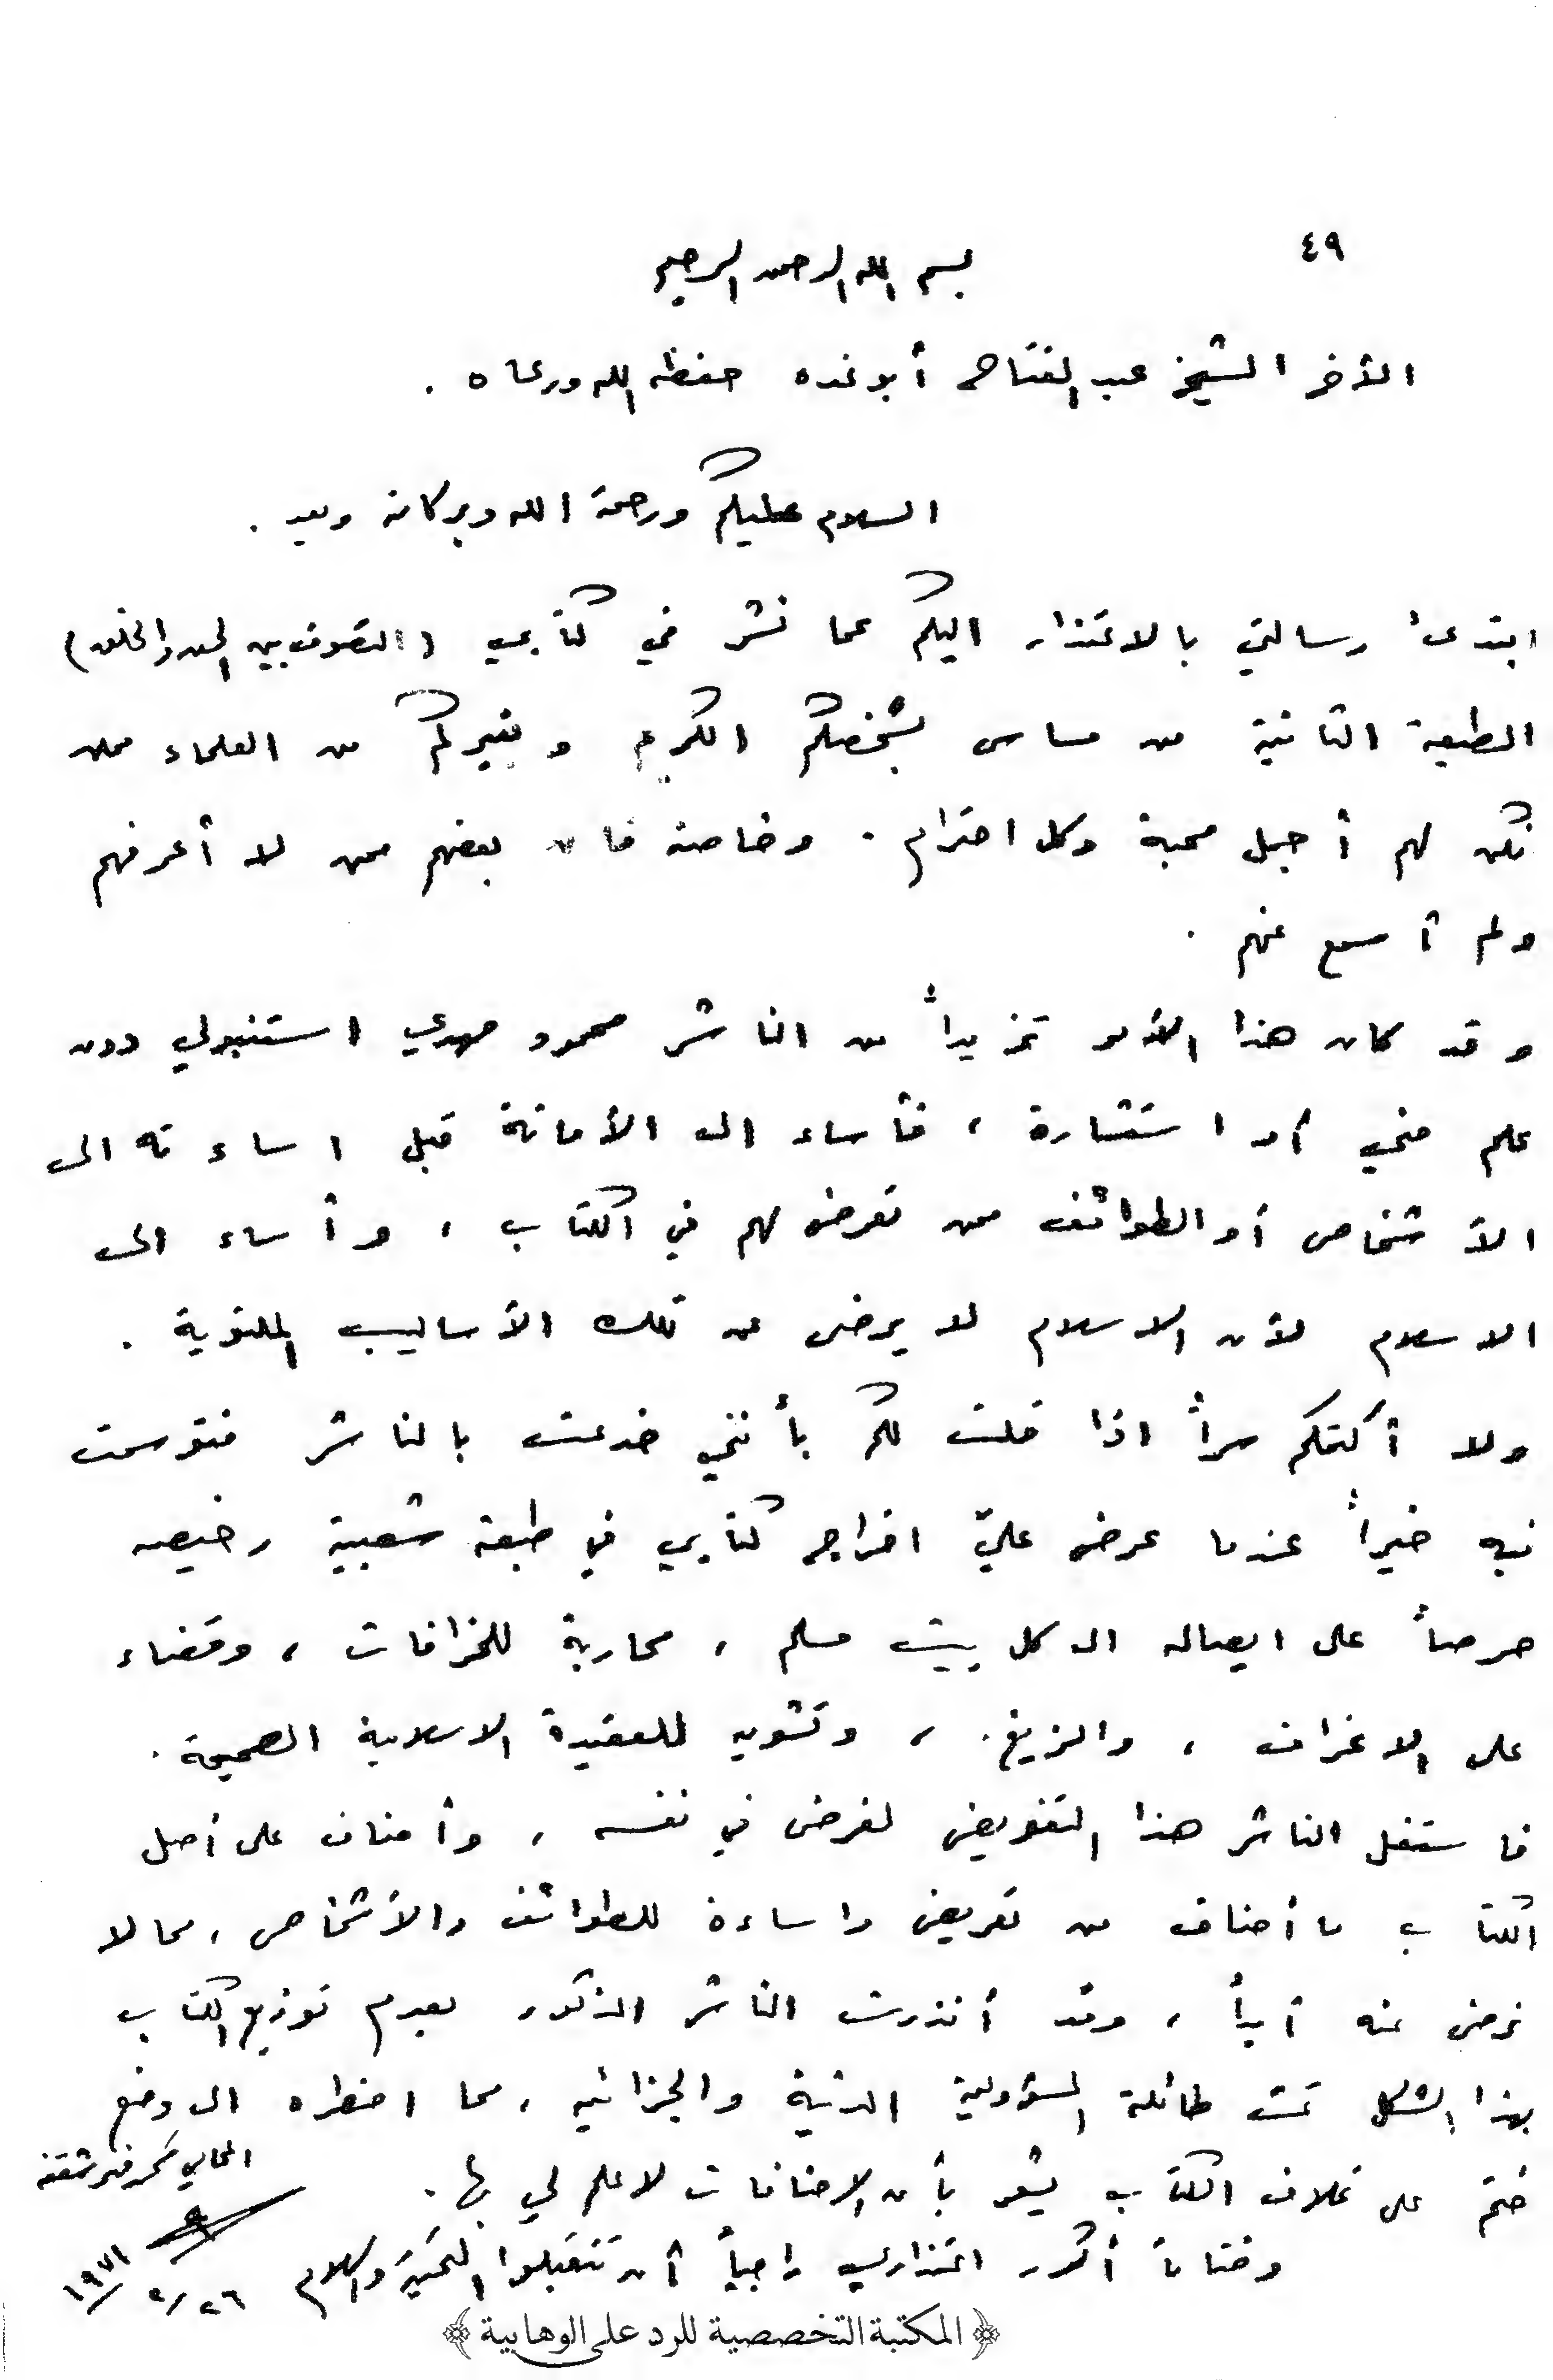 ٤٩
بسم الله الرحمن الرحيم
الأخ الشيخ عبد الفتاح أبو غده حفظه الله ورعاه .
السلام عليكم ورحمة الله وبركاته وبعد .
ابتدىء رسالتي بالاعتذار اليكم عما نشر في كتابي ( التصوف بين الحق والخلق )
الطبعة الثانية من مساس بشخصكم الكريم وبغيركم من العلماء ممن
نكن لهم أجل محبة وكل احترام . وخاصة فان بعضهم ممن لا أعرفهم
ولم أسمع عنهم .
وقد كان هذا الأمر تزيداً من الناشر محمود مهدي استنبولي دون
علم مني أو استشارة ، فأساء الى الأمانة قبل اساءته الى
الأشخاص أو الطوائف ممن تعرض لهم في الكتاب ، وأساء الى
الاسلام لأن الاسلام لا يرضى عن تلك الأساليب الملتوية .
ولا أكتمكم سراً اذا قلت لكم بأنني خدعت بالناشر فتوسمت
فيه خيراً عندما عرض عليّ اخراج كتابي في طبعة شعبية رخيصه
حرصاً على ايصاله الى كل بيت مسلم ، محاربة للخرافات ، وقضاء
على الانحراف ، والزيغ ، وتشويه للعقيدة الاسلامية الصحيحة .
فاستغل الناشر هذا التفويض لغرض في نفسه ، وأضاف على أصل
الكتاب ما أضاف من تعريض واساءة للطوائف والأشخاص ، مما لا
نرضى عنه أبداً ، وقد أنذرت الناشر المذكور بعدم توزيع الكتاب
بهذا الشكل تحت طائلة المسؤولية المدنية والجزائيه ، مما اضطره الى وضع
ختم على غلاف الكتاب يشعر بأن الاضافات لا علم لي بها .
وختاماً أكرر اعتذاري راجياً أن تتقبلوا التحية والسلام
المحامي محمد فهر شقفه
٢٦/٢/١٩٧١
﴿ المكتبة التخصصية للرد على الوهابية ﴾